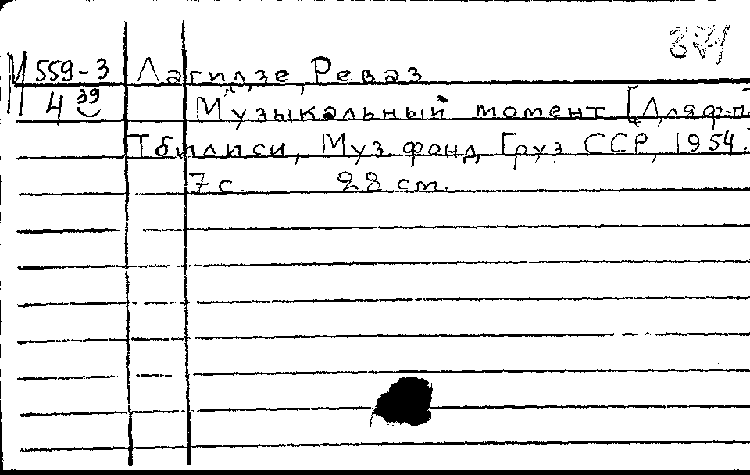 М 559-3 Лагидзе, Реваз
4 39 Музыкальный момент [Для ф-п
Тбилиси, Муз. фонд Груз ССР, 1954.
7 с. 28 см.